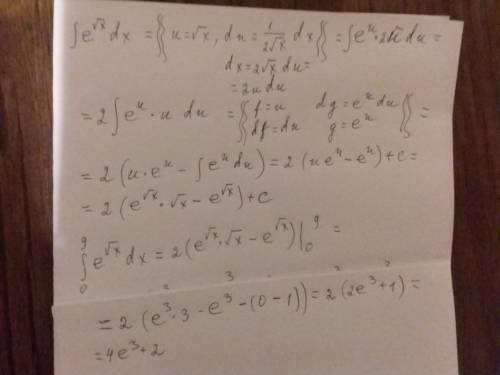 ∫e^√x dx = {{ u=√x, du = 1/(2√x) dx }} = ∫e^u · 2u du =
dx = 2√x du =
= 2u du
= 2∫e^u · u du = {{ f=u dg=e^u du }} =
df=du g=e^u
= 2(u·e^u − ∫e^u du) = 2(ue^u − e^u) + c =
= 2(e^√x · √x − e^√x) + c
∫₀⁹ e^√x dx = 2(e^√x · √x − e^√x)|₀⁹ =
= 2(e³·3 − e³ − (0 − 1)) = 2(2e³ + 1) =
= 4e³ + 2